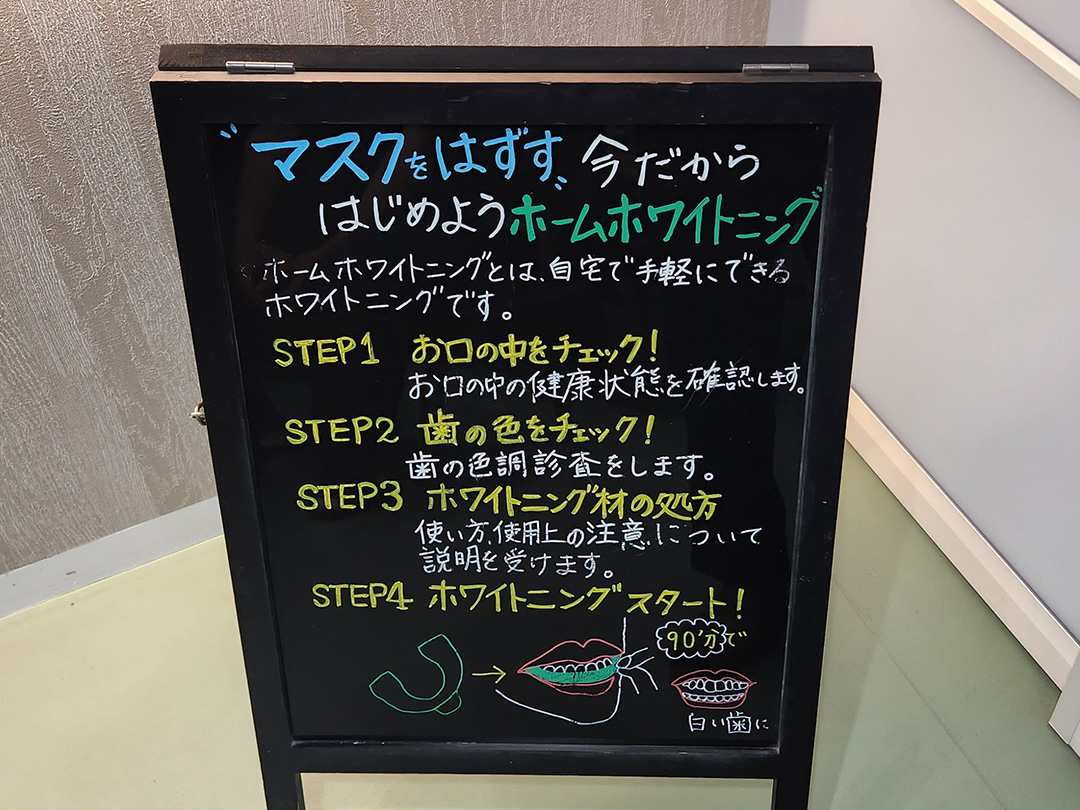 "マスクをはずす"今だから
はじめようホームホワイトニング
ホームホワイトニングとは、自宅で手軽にできる
ホワイトニングです。
STEP1 お口の中をチェック!
お口の中の健康状態を確認します。
STEP2 歯の色をチェック!
歯の色調診査をします。
STEP3 ホワイトニング材の処方
使い方、使用上の注意について
説明を受けます。
STEP4 ホワイトニングスタート!
90分で
白い歯に